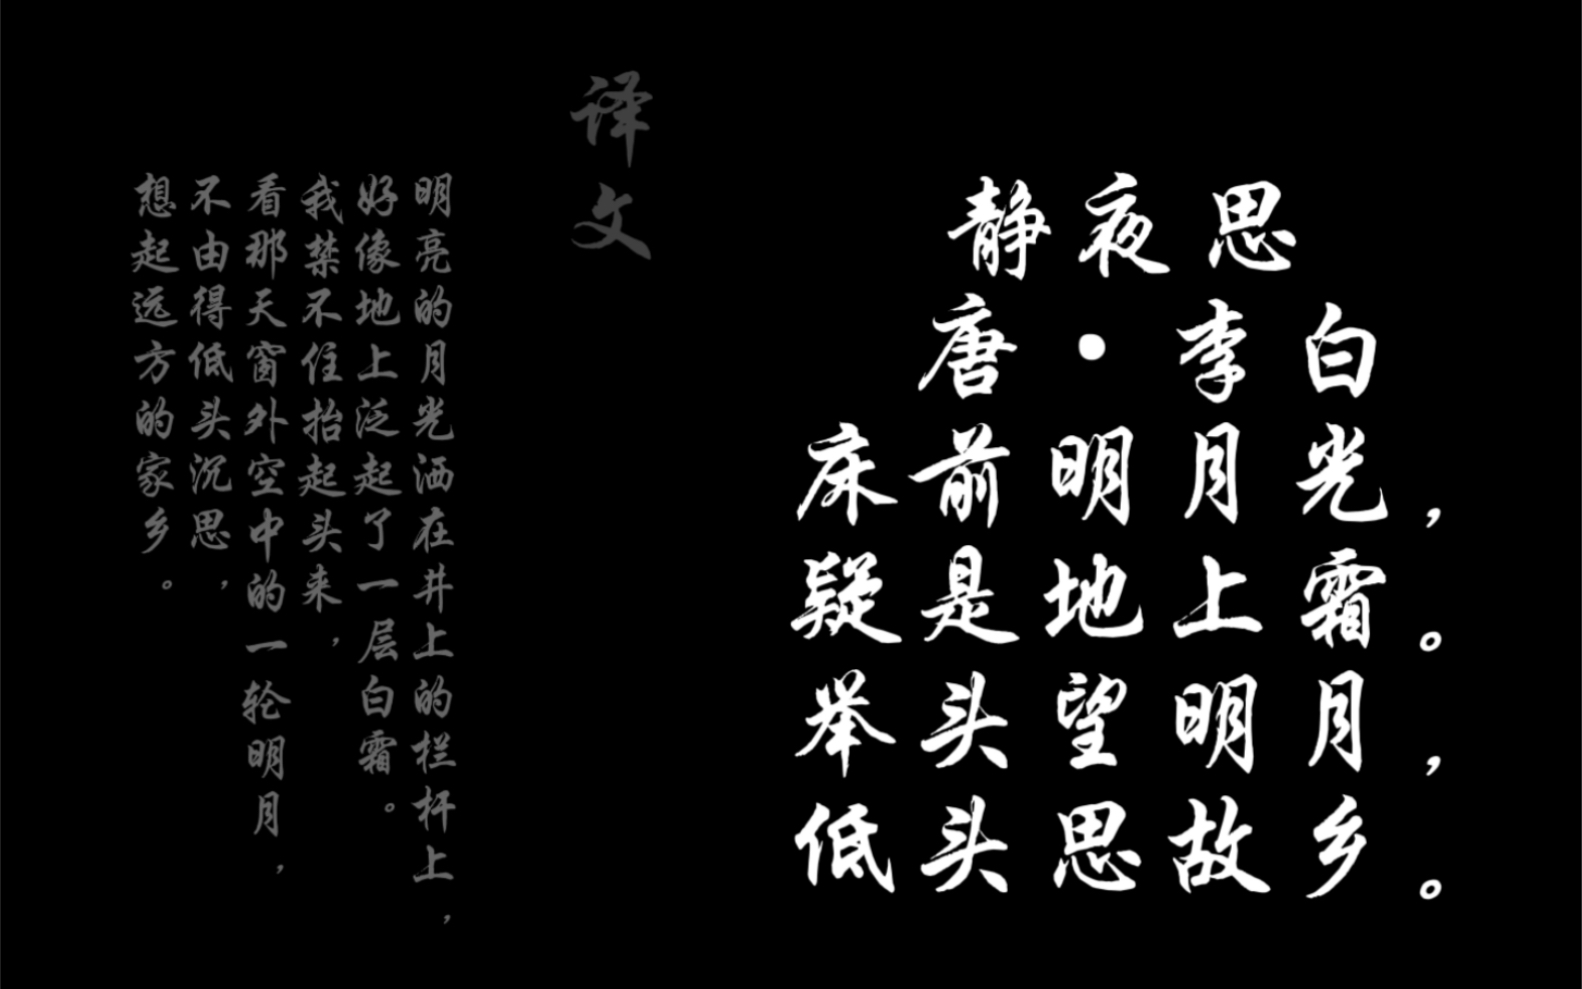 静夜思
唐·李白
床前明月光，
疑是地上霜。
举头望明月，
低头思故乡。
译文
明亮的月光洒在井上的栏杆上，
好像地上泛起了一层白霜。
我禁不住抬起头来，
看那天窗外空中的一轮明月，
不由得低头沉思，
想起远方的家乡。